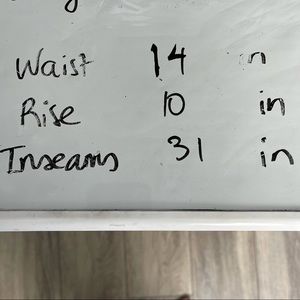 Waist 14 in
Rise 10 in
Inseams 31 in